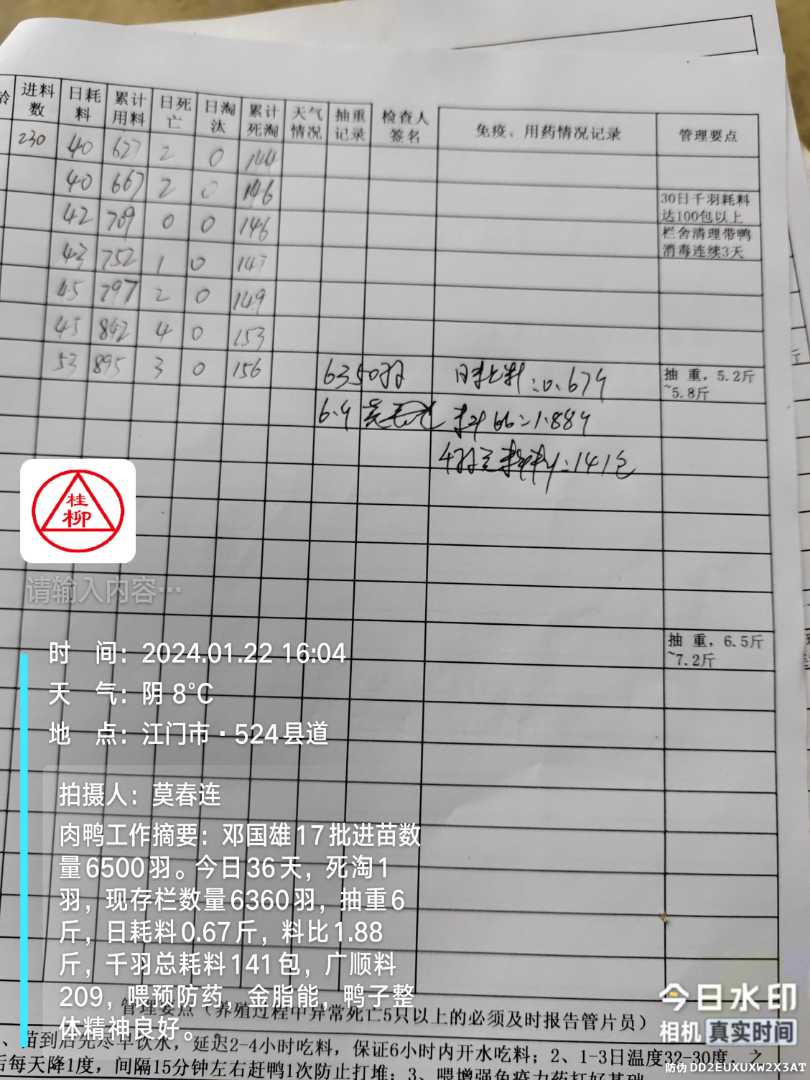 龄 进料数 日耗料 累计用料 日死亡 日淘汰 累计死淘 天气情况 抽重记录 检查人签名 免疫、用药情况记录 管理要点
230 40 627 2 0 144
40 667 2 0 146
30日千羽耗料
达100包以上
42 709 0 0 146
栏舍清理带鸭
消毒连续3天
43 752 1 0 147
45 797 2 0 149
45 842 4 0 153
53 895 3 0 156 6350羽 日耗料:0.67斤
抽 重，5.2斤
~5.8斤
6.4 料比=1.88斤
料:141包
桂柳
请输入内容…
抽 重，6.5斤
~7.2斤
时 间：2024.01.22 16:04
天 气：阴 8°C
地 点：江门市·524县道
拍摄人：莫春连
肉鸭工作摘要：邓国雄17批进苗数
量6500羽。今日36天，死淘1
羽，现存栏数量6360羽，抽重6
斤，日耗料0.67斤，料比1.88
斤，千羽总耗料141包，广顺料
209，喂预防药，金脂能，鸭子整
体精神良好。
管理要点（养殖过程中异常死亡5只以上的必须及时报告管片员）
、苗到后先寒早饮水，延迟2-4小时吃料，保证6小时内开水吃料；2、1-3日温度32-30度，之
后每天降1度，间隔15分钟左右赶鸭1次防止打堆；3、喂增强免疫力药打好基础
今日水印
相机 真实时间
防伪 DD2EUXUXW2X3AT